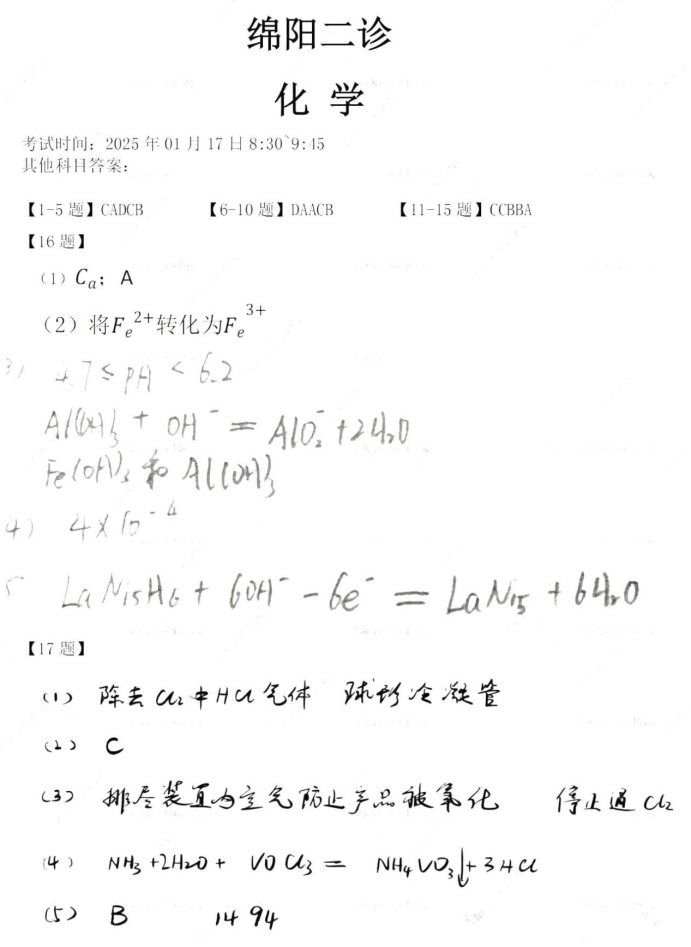 绵阳二诊
化 学
考试时间：2025 年 01 月 17 日 8:30~9:45
其他科目答案：
【1-5 题】CADCB 【6-10 题】DAACB 【11-15 题】CCBBA
【16 题】
（1）Cₐ；A
（2）将Fₑ²⁺转化为Fₑ³⁺
3) 4.7≤pH<6.2
Al(OH)₃ + OH⁻ = AlO₂⁻+2H₂O
Fe(OH)₃ 和 Al(OH)₃
4) 4×10⁻⁴
5 LaNi₅H₆ + 6OH⁻ - 6e⁻ = LaNi₅ + 6H₂O
【17 题】
(1) 除去 Cl₂ 中 HCl 气体 球形冷凝管
(2) C
(3) 排尽装置内空气防止产品被氧化 停止通 Cl₂
(4) NH₃ +2H₂O + VOCl₃ = NH₄VO₃↓+3HCl
(5) B 14 94